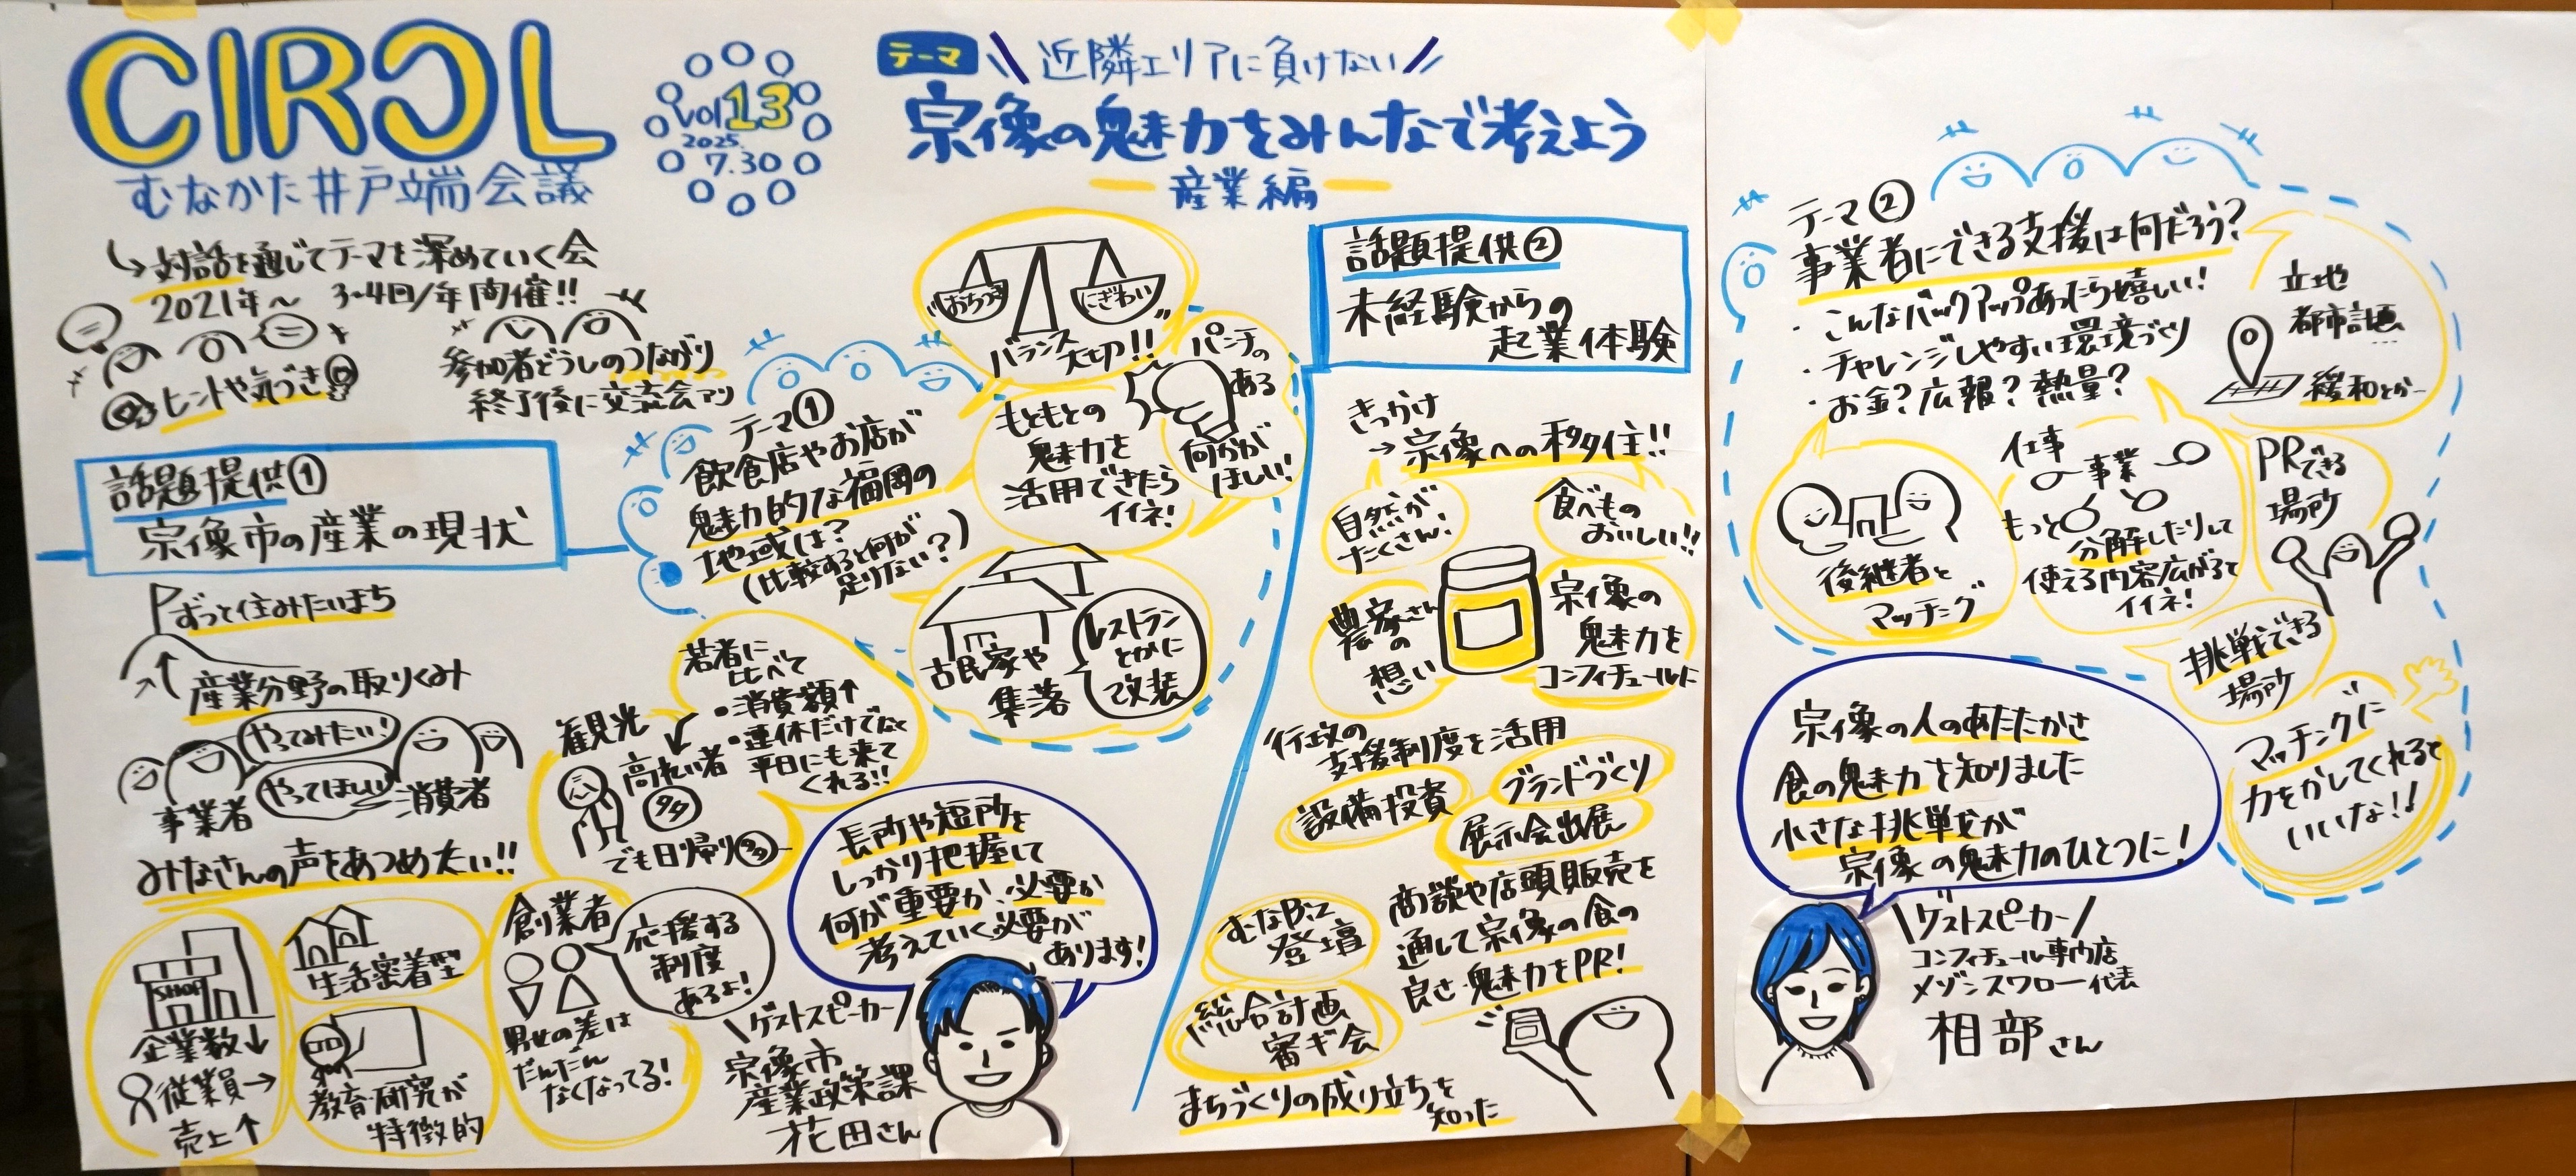 CIRCL
むなかた井戸端会議
vol 13
2025.
7.30
テーマ
近隣エリアに負けない
宗像の魅力をみんなで考えよう
産業編
対話を通じてテーマを深めていく会
2021年〜 3・4回/年開催!!
ヒントや気づき
参加者どうしのつながり
終了後に交流会アリ
話題提供①
宗像市の産業の現状
ずっと住みたいまち
産業分野の取りくみ
やってみたい!
やってほしい!
事業者
消費者
みなさんの声をあつめたい!!
SHOP
企業数↓
従業員→
売上↑
生活密着型
教育・研究が
特徴的
創業者
応援する
制度
あるよ!
男女の差は
だんだん
なくなってる!
観光
高れい者
多
でも日り帰り多
若者に
比べて
・消費額↑
・連休だけでなく
平日にも来て
くれる!!
テーマ①
飲食店やお店が
魅力的な福岡の
地域は?
(比較すると何が
足りない?)
"おちつき"
"にぎわい"
バランス
大切!!
もともとの
魅力を
活用できたら
イイネ!
パンチの
ある
何かが
ほしい!
古民家や
集落
レストラン
とかに
改装
長所や短所を
しっかり把握して
何が重要か、必要か
考えていく必要が
あります!
ゲストスピーカー
宗像市
産業政策課
花田さん
話題提供②
未経験からの
起業体験
きっかけ
→宗像への移住!!
自然が
たくさん!
食べもの
おいしい!!
農家さん
の
想い
宗像の
魅力を
コンフィチュールに
行政の
支援制度を活用
設備投資
ブランドづくり
展示会出展
商談や店頭販売を
通して宗像の食の
良さ・魅力をPR!
むなびに
登壇
総合計画
審ギ会
まちづくりの成り立ちを
知った
テーマ②
事業者にできる支援は何だろう?
・こんなバックアップあったら嬉しい!
・チャレンジしやすい環境づくり
・お金?広報?熱量?
立地
都市計画
…
緩和とか
後継者と
マッチング
仕事
事業
もっと
分解したりして
使える内容広がると
イイネ!
PRできる
場所
挑戦できる
場所
マッチングに
力をかしてくれると
いいな!!
宗像の人のあたたかさ
食の魅力を知りました
小さな挑戦が
宗像の魅力のひとつに!
ゲストスピーカー
コンフィチュール専門店
メゾンスワロー代表
相部さん